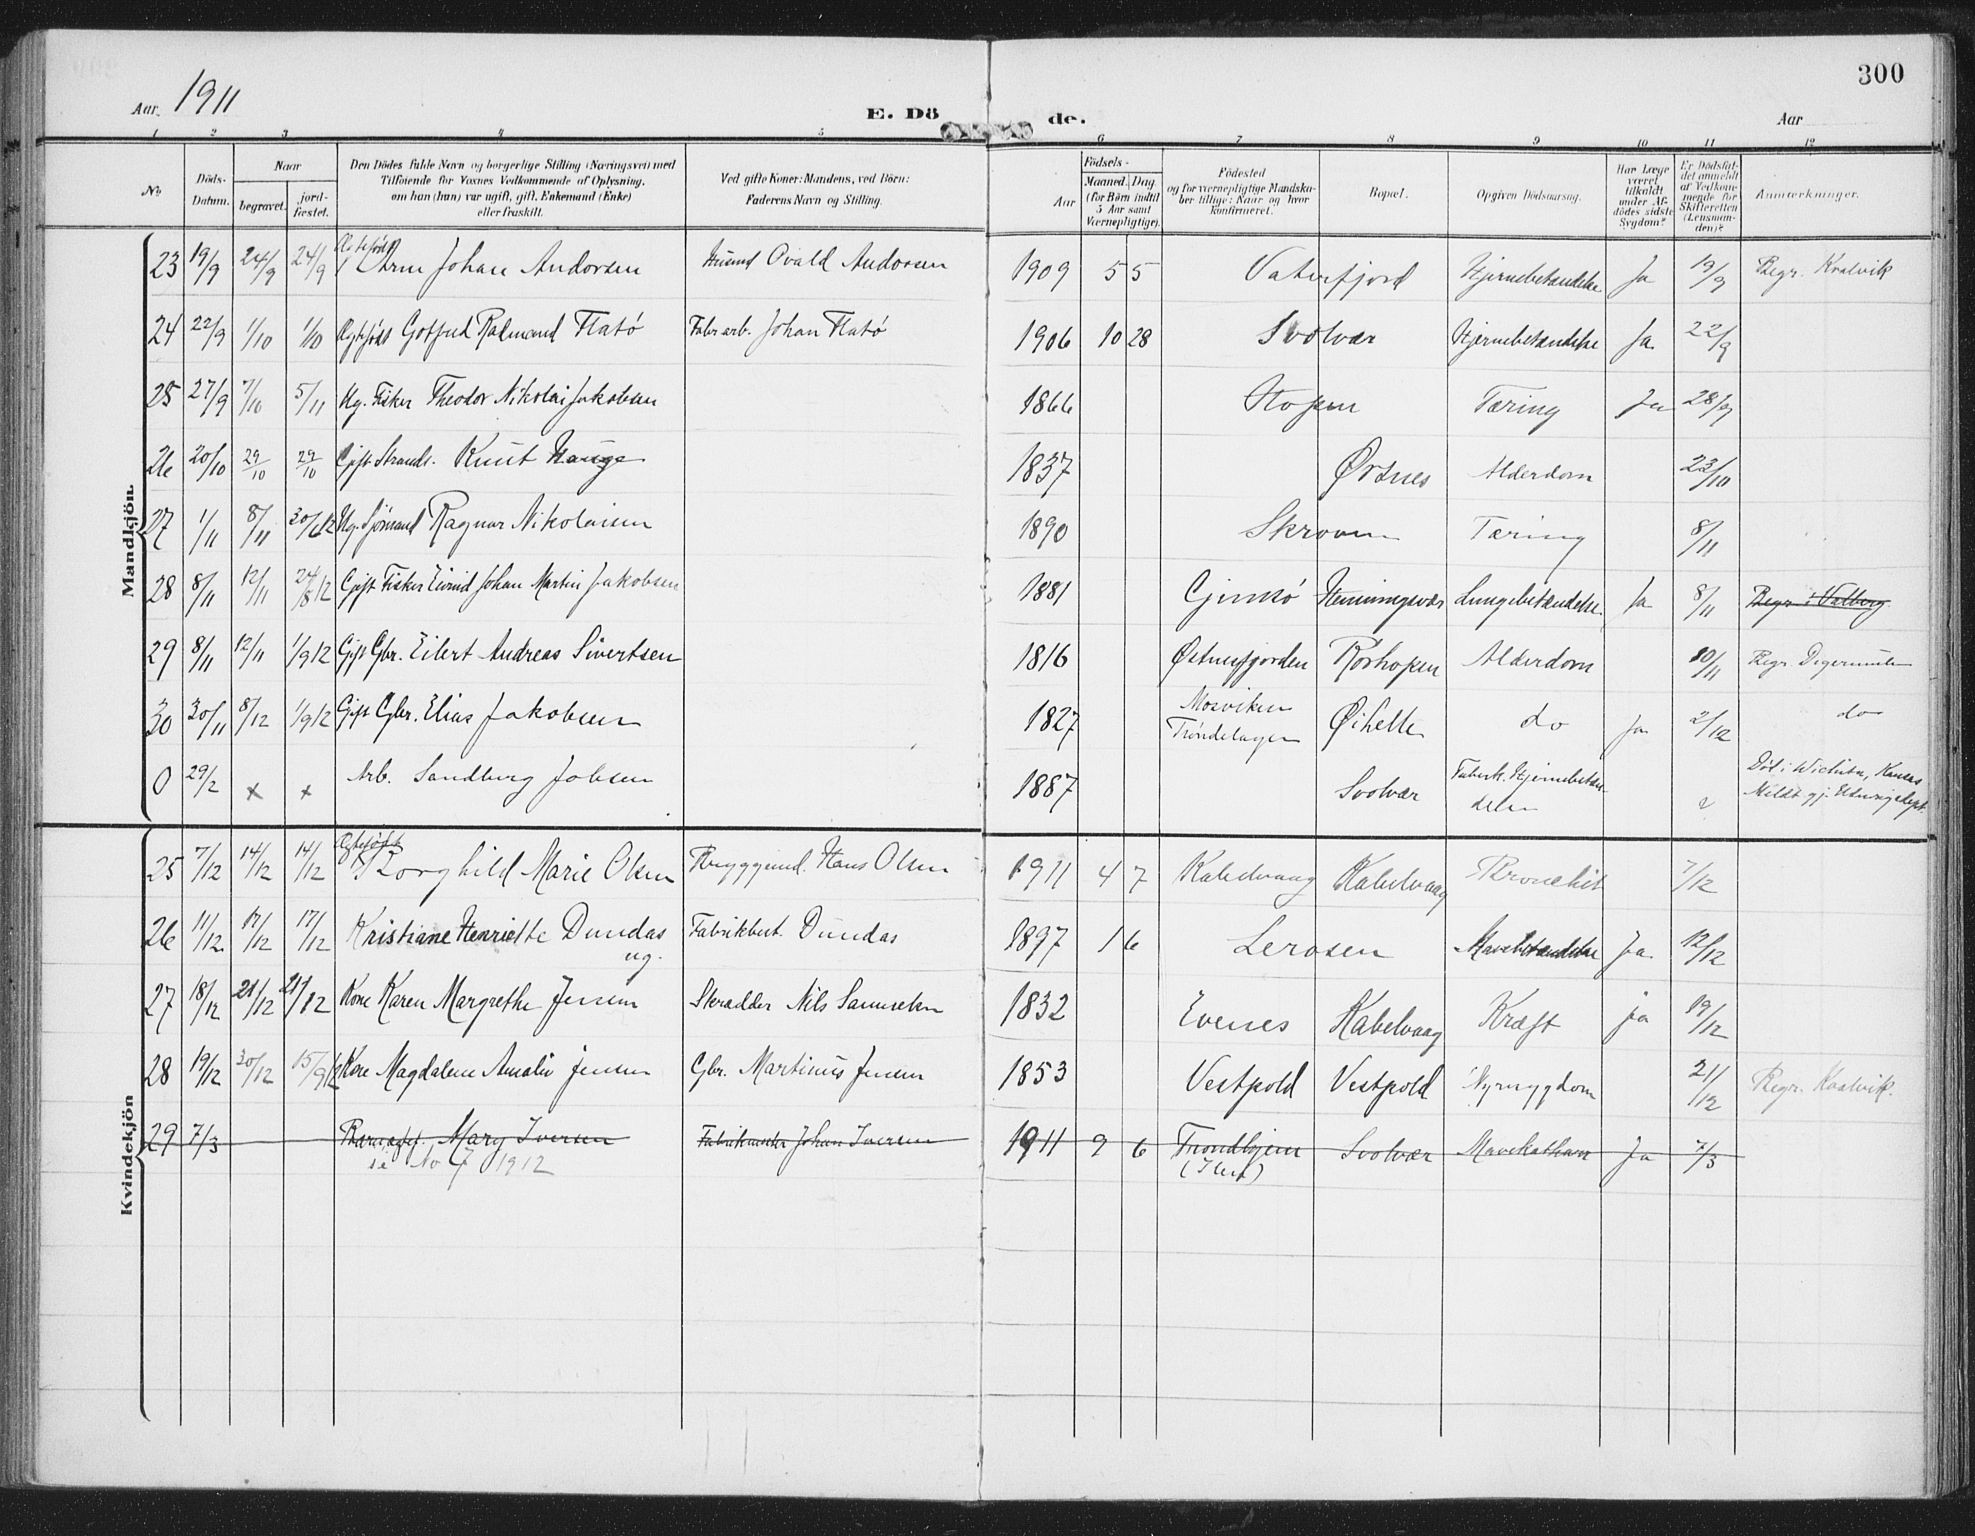 300
Aar. 1911 E. Dö de. Aar
1 2 3 4 5 6 7 8 9 10 11 12
No Döds-Datum. Naar begravet. jord-fæstet. Den Dödes fulde Navn og borgerlige Stilling (Næringsvei) med Tilföiende for Voxnes Vedkommende af Oplysning, om han (hun) var ugift, gift, Enkemand (Enke) eller fraskilt. Ved gifte Koner: Mandens, ved Börn: Faderens Navn og Stilling. Födsels- Aar Maaned. Dag. (for Börn indtil 5 Aar samt Værnepligtige). Födested og for værnepligtige Mandskaber tillige: Naar og hvor konfirmeret. Bopæl. Opgiven Dödsaarsag. Har Læge været tilkaldt under Afdödes sidste Sygdom? Er Dödsfaldet anmeldt af Vedkommende for Skifteretten (Lensmanden)? Anmærkninger.
Mandkjön.
23 19/9 24/9 24/9 Ægtefødt Arne Johan Andorsen Husmd Ovald Andorsen 1909 5 5 Vaterfjord Hjernebetændelse Ja 19/9 Begr. Kvalvik
24 22/9 1/10 1/10 Ægtefødt Gotfred Rolmand Flatø Fabr arb. Johan Flatø 1906 10 28 Svolvær Hjernebetændelse Ja 22/9
25 27/9 7/10 5/11 Ug. Fisker Theodor Nikolai Jakobsen 1866 Hopen Tæring Ja 28/9
26 20/10 29/10 29/10 Gift Strands. Knut Hauge 1837 Østnes Alderdom 23/10
27 1/11 8/11 30/6 12 Ug. Sjømand Ragnar Nikolaisen 1890 Skroven Tæring 8/11
28 8/11 12/11 24/8 12 Gift Fisker Eivind Johan Martin Jakobsen 1881 Gimsø Henningsvær Lungebetændelse Ja 8/11 Begr. i Valberg
29 8/11 12/11 1/9 12 Gift Gbr. Eilert Andreas Sivertsen 1816 Østnesfjorden Rorhopen Alderdom 10/11 Begr. Digermulen
30 30/11 8/12 1/9 12 Gift Gbr. Elias Jakobsen 1827 Mosviken Trøndelagen Øihelle do Ja 2/12 do
0 29/2 x x Arb. Sandberg Jobsen 1887 Svolvær Tuberk. Hjernebetændelse Død i Wichita, Kansas Meldt gj.
Kvindekjön
25 7/12 14/12 14/12 Ægtefødt Borghild Marie Olsen Bryggemd. Hans Olsen 1911 4 7 Kabelvaag Kabelvaag Bronchit 7/12
26 11/12 17/12 17/12 Kristiane Henriette Dundas ug. Fabrikbest. Dundas 1897 1 6 Lerosen Mavebetændelse Ja 12/12
27 18/12 21/12 21/12 Kone Karen Margrethe Jensen Skrædder Nils Samuelsen 1832 Evenes Kabelvaag Kræft ja 19/12
28 19/12 30/12 15/9 12 Kone Magdalene Amalie Jensen Gbr. Martinus Jensen 1853 Vestpold Vestpold Nyresygdom 21/12 Begr. Kvalvik.
29 7/3 Mary Iversen Fabrikmester Johan Iversen 1911 9 6 Trondhjem (Ilen) Svolvær Mavekatharr Ja 7/3
se No 7 1912